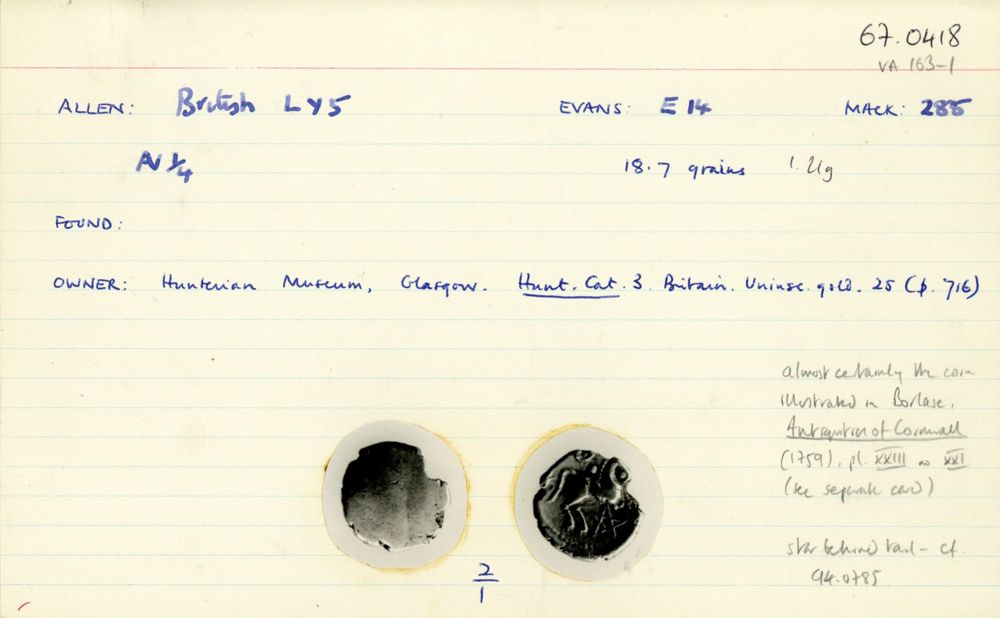 67.0418
VA 163-1
ALLEN: British LY5 EVANS: E 14 MACK: 285
AV 1/4 18.7 grains 1.21g
FOUND:
OWNER: Hunterian Museum, Glasgow. Hunt. Cat. 3. Britain. Uninsc. gold. 25 (p. 716)
almost certainly the coin
illustrated in Borlase,
Antiquities of Cornwall
(1759), pl. XXIII no XXI
(see separate card)
star behind tail - cf.
94.0785
2/1